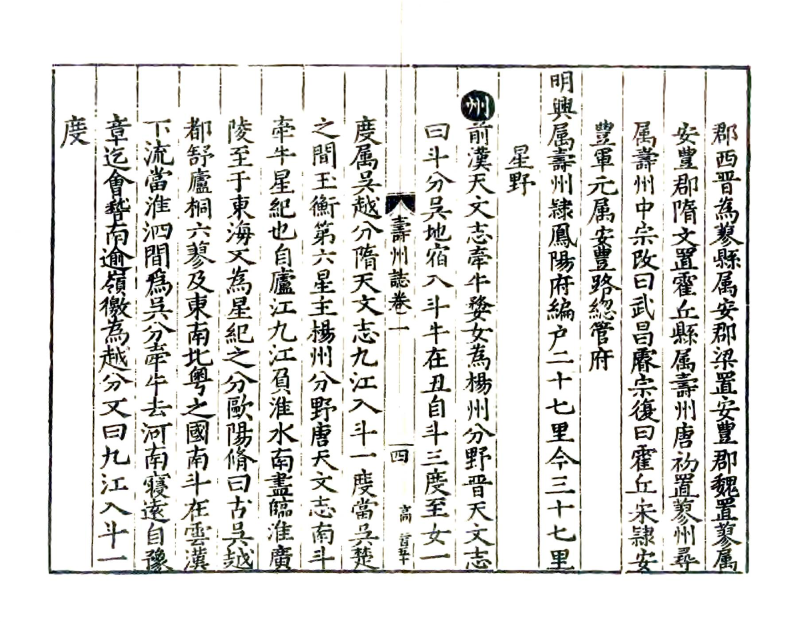 郡西晋為蓼縣属安郡梁置安豊郡魏置蓼属
安豊郡隋文置霍丘縣属壽州唐初置蓼州尋
属壽州中宗改曰武昌睿宗復曰霍丘宋隷安
豊軍元属安豊路緫管府
明興属壽州隷鳳陽府編户二十七里今三十七里
星野
州前漢天文志牽牛婺女為楊州分野晋天文志
曰斗分吳地宿八斗牛在丑自斗三度至女一
壽州誌卷一
四
高
度属吳越分隋天文志九江入斗一度當吳楚
之間玉衡第六星主楊州分野唐天文志南斗
牽牛星紀也自廬江九江負淮水南盡臨淮廣
陵至于東海又為星紀之分歐陽脩曰古吳越
都舒廬桐六蓼及東南北粤之國南斗在雲漢
下流當淮泗間為吳分牽牛去河南寝遠自豫
章迄會嵇南逾嶺徼為越分又曰九江入斗一
度